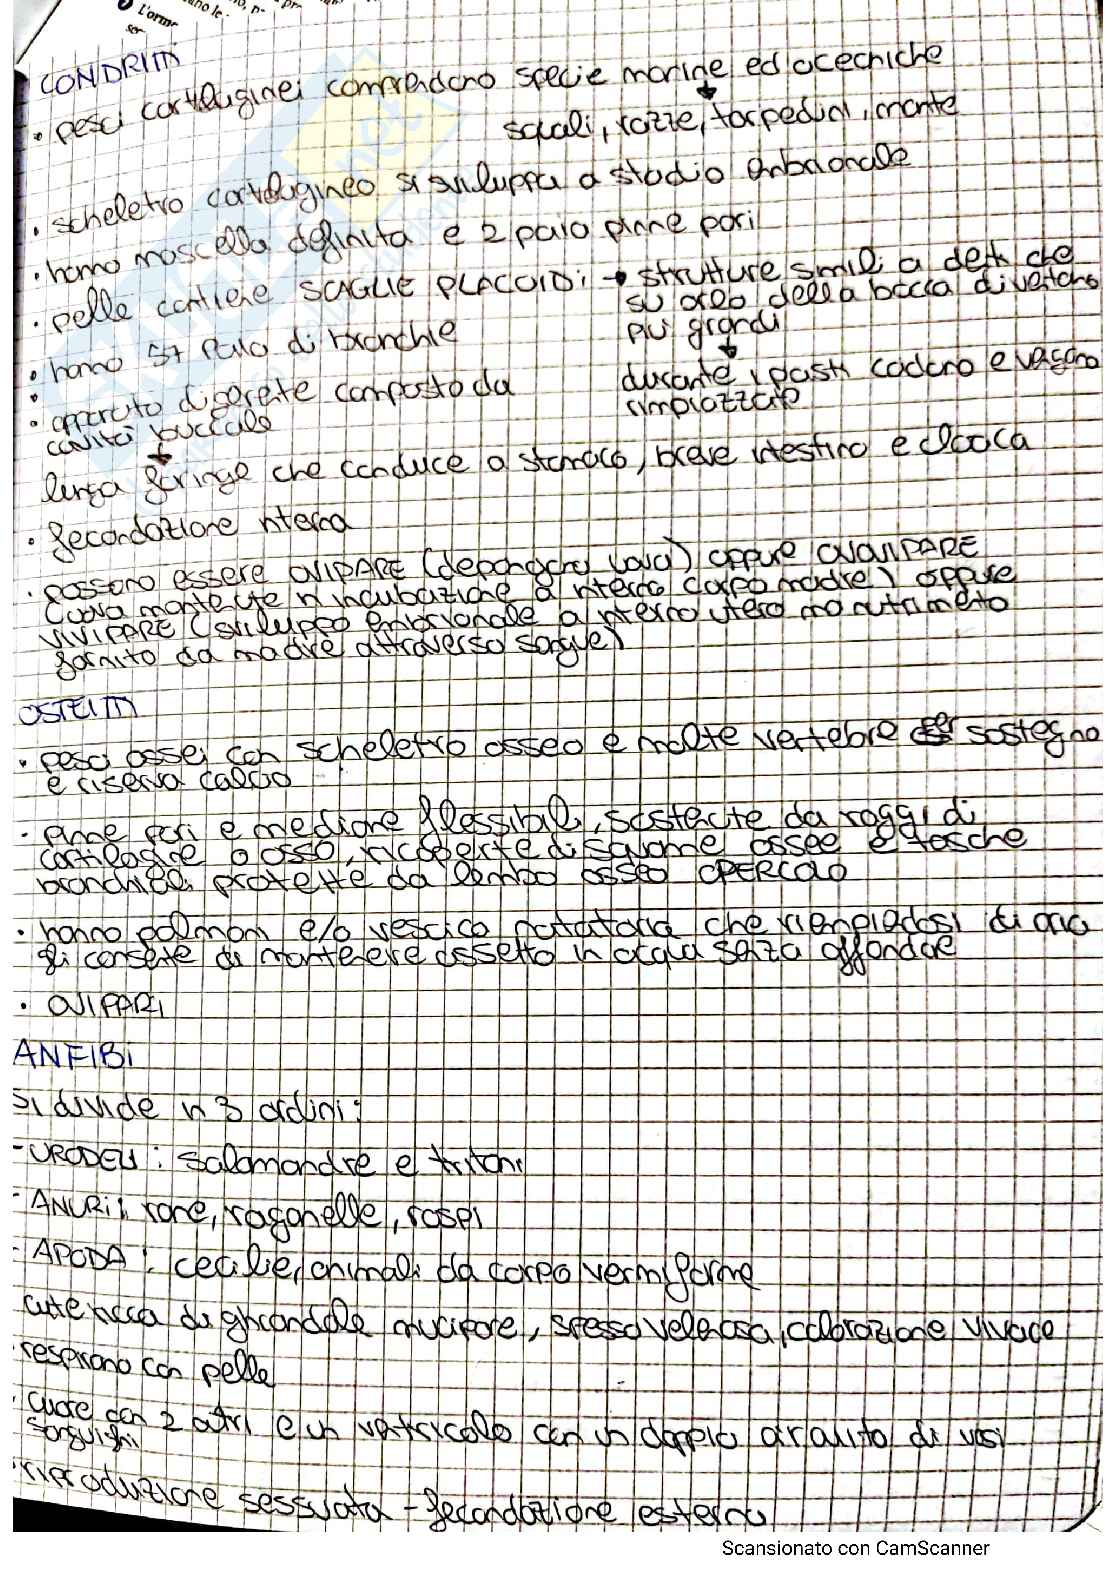 L'orme
CONDRITTI
• pesci cartilaginei comprendono specie marine ed oceaniche
squali, razze, torpedini, mante
• scheletro cartilagineo si sviluppa a stadio embrionale
• hanno mascella definita e 2 paia pinne pari
• pelle contiene SCAGLIE PLACOIDI → strutture simili a denti che
su orlo della bocca diventano
più grandi
• hanno 5+ paia di branchie
durante i pasti cadono e vengono
rimpiazzate
• apparato digerente composto da
cavità buccale
lunga faringe che conduce a stomaco, breve intestino e cloaca
• fecondazione interna
• possono essere OVIPARE (depongono uova) oppure OVOVIPARE
(uova mantenute in incubazione a interno corpo madre) oppure
VIVIPARE (sviluppo embrionale a interno utero ma nutrimento
fornito da madre attraverso sangue)
OSTEITTI
• pesci ossei con scheletro osseo e molte vertebre per sostegno
e riserva calcio
• pinne pari e mediane flessibili, sostenute da raggi di
cartilagine o osso, ricoperte di squame ossee e tasche
branchiali protette da lembo osseo OPERCOLO
• hanno polmoni e/o vescica natatoria che riempiedosi di aria
gli consente di mantenere assetto in acqua senza affondare
• OVIPARI
ANFIBI
Si divide in 3 ordini:
- URODELI: salamandre e tritoni
- ANURI: rane, raganelle, rospi
- APODA: cecilie, animali da corpo vermiforme
cute ricca di ghiandole mucipare, spesso velenosa, colorazione vivace
• respirano con pelle
• cuore con 2 atri e un ventricolo con un doppio circuito di vasi
sanguigni
• riproduzione sessuata - fecondazione esterna
Scansionato con CamScanner